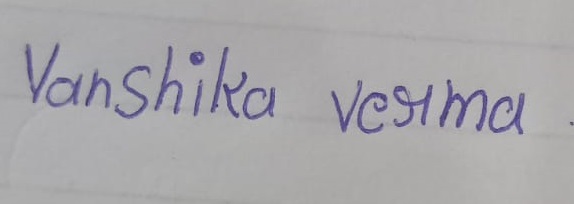 Vanshika verma